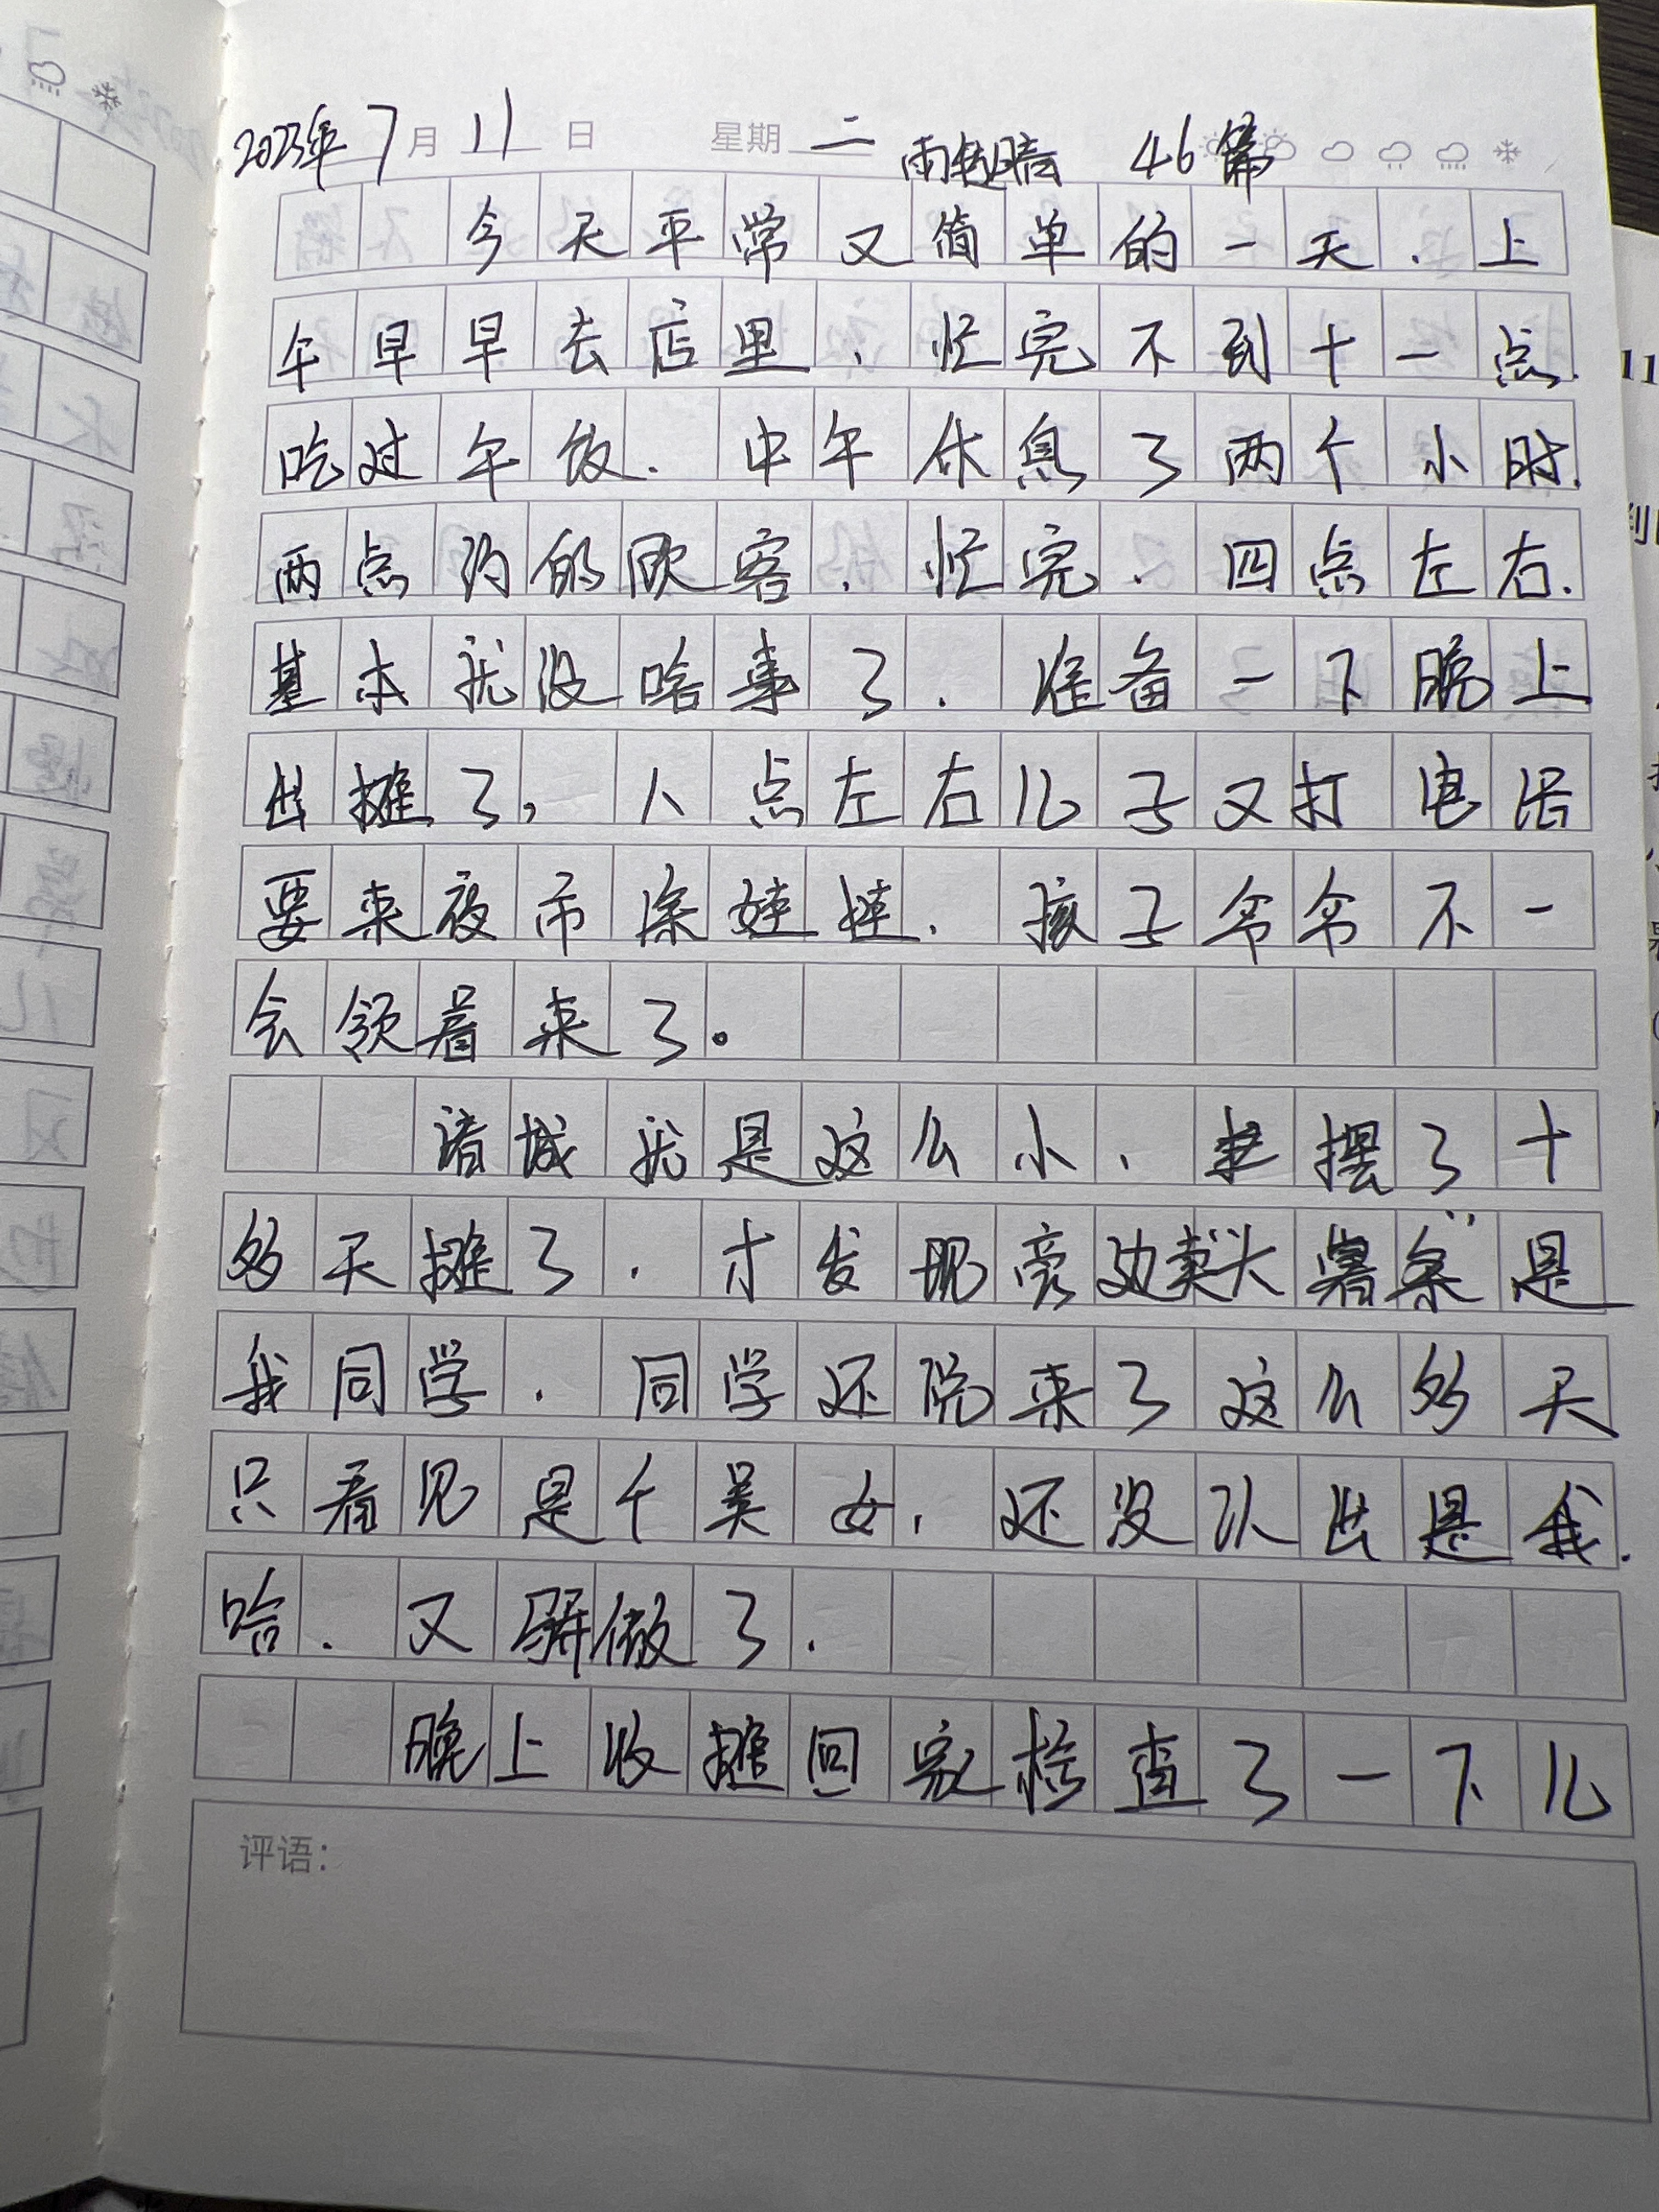 2023年7月11日 星期二 雨转晴 46篇
今天平常又简单的一天.上
午早早去店里.忙完不到十一点.
吃过午饭.中午休息了两个小时.
两点约的顾客.忙完.四点左右.
基本就没啥事了.准备一下晚上
出摊了,八点左右儿子又打电话
要来夜市涂娃娃.孩子爷爷不一
会领着来了。
诸城就是这么小.摆了十
多天摊了.才发现旁边卖大薯条是
我同学.同学还说来了这么多天
只看见是个美女,还没认出是我.
哈.又骄傲了.
晚上收摊回家检查了一下儿
评语：